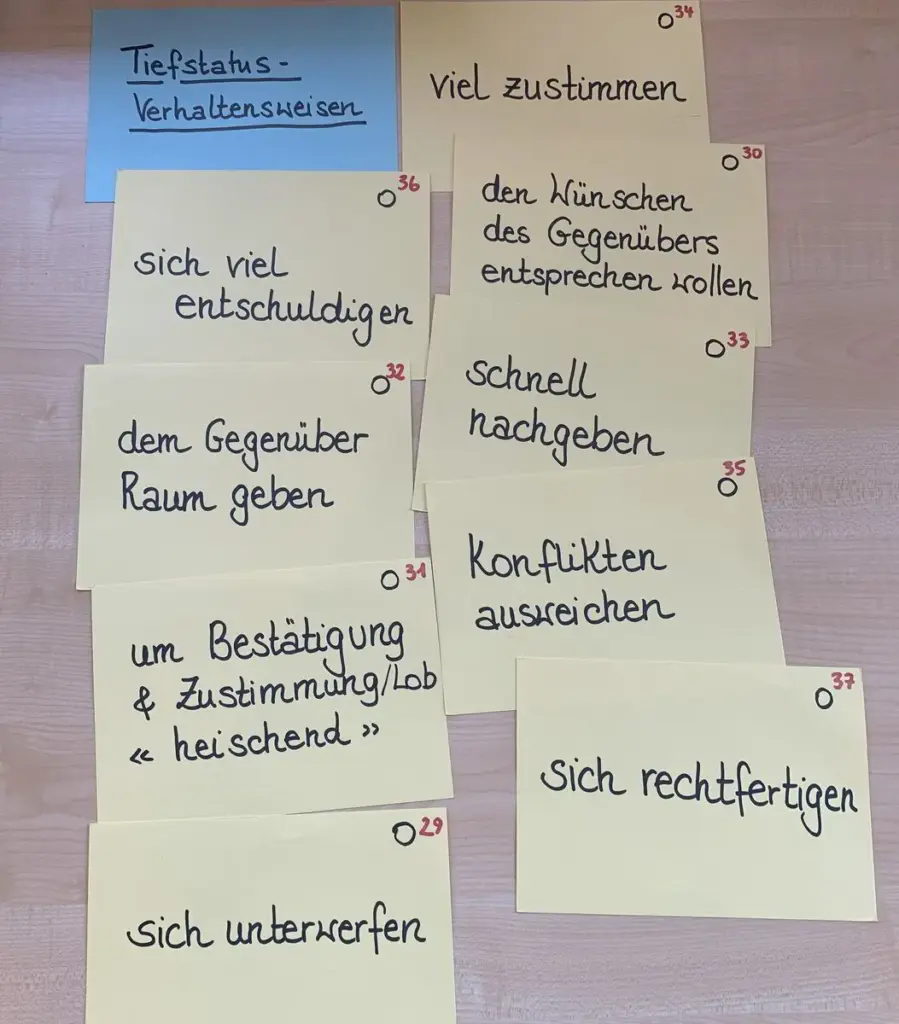 Tiefstatus-
Verhaltensweisen
34
viel zustimmen
36
sich viel
entschuldigen
30
den Wünschen
des Gegenübers
entsprechen wollen
32
dem Gegenüber
Raum geben
33
schnell
nachgeben
31
um Bestätigung
& Zustimmung/Lob
« heischend »
35
Konflikten
ausweichen
29
sich unterwerfen
37
sich rechtfertigen